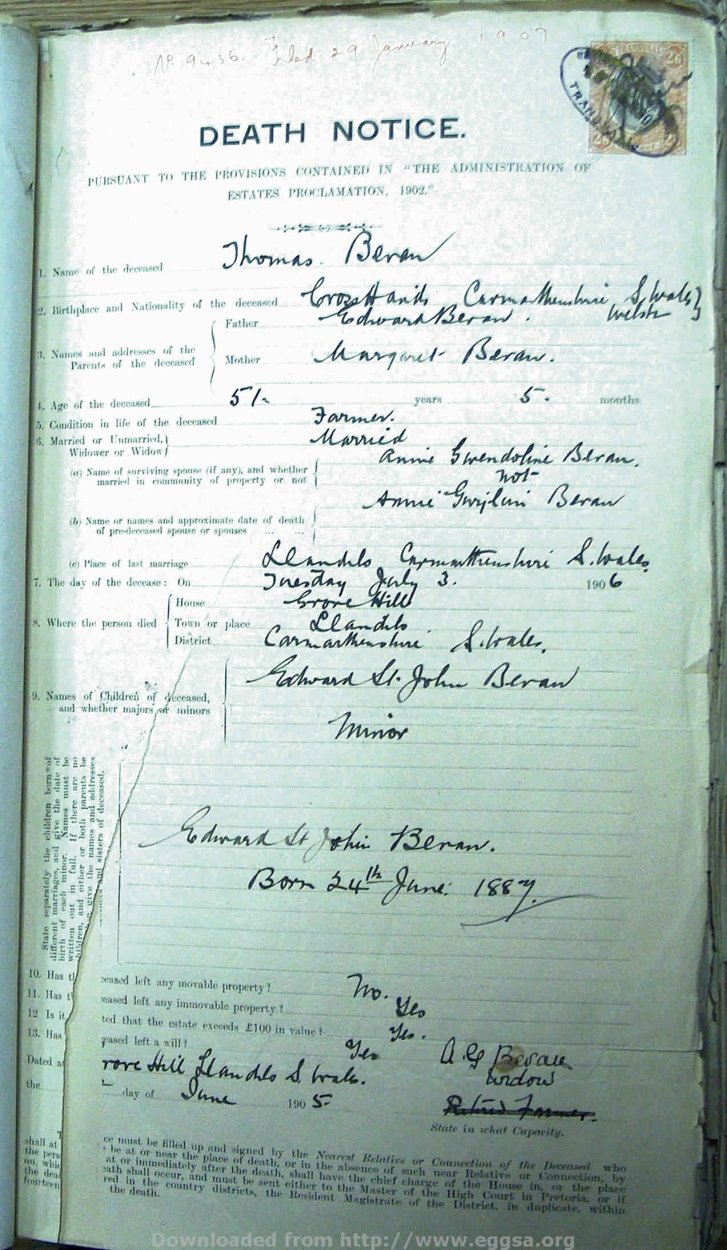 No 9436. Filed 29 January 1907
DEATH NOTICE.
PURSUANT TO THE PROVISIONS CONTAINED IN "THE ADMINISTRATION OF
ESTATES PROCLAMATION, 1902."
1. Name of the deceased Thomas Bevan
2. Birthplace and Nationality of the deceased Cross Hands Carmarthenshire S. Wales} Welsh
3. Names and addresses of the Parents of the deceased
Father Edward Bevan.
Mother Margaret Bevan.
4. Age of the deceased 51- years 5- months
5. Condition in life of the deceased Farmer.
6. Married or Unmarried, Widower or Widow Married
(a) Name of surviving spouse (if any), and whether married in community of property or not
Annie Gwendoline Bevan.
not
Annie Bevan
(b) Name or names and approximate date of death of pre-deceased spouse or spouses ... ...
(c) Place of last marriage Llandilo Carmarthenshire S. Wales.
7. The day of the decease: On Tuesday July 3. 1906
8. Where the person died
House Grove Hill
Town or place Llandilo
District Carmarthenshire S. Wales.
9. Names of Children of deceased, and whether majors or minors
Edward St. John Bevan
Minor
State separately the children born of
different marriages, and give the date of
birth of each minor. Names must be
written out in full. If there are no
children, and either or both parents be
give the names and addresses
and sisters of deceased.
Edward St John Bevan.
Born 24th June. 1887.
10. Has th eased left any movable property? No.
11. Has t eased left any immovable property? Yes
12 Is it ted that the estate exceeds £100 in value? Yes.
13. Has eased left a will? Yes
Dated a rove Hill Llandilo S. Wales.
A G Bevan
widow
the day of June 1905-
Retired Farmer.
State in what Capacity.
ce must be filled up and signed by the Nearest Relative or Connection of the Deceased who
shall at be at or near the place of death, or in the absence of such near Relative or Connection, by
the pers at or immediately after the death, shall have the chief charge of the House in, or the place
on, whi ath shall occur, and must be sent either to the Master of the High Court in Pretoria, or if
the dea red in the country districts, the Resident Magistrate of the District, in duplicate, within
fourteen the death.
Downloaded from http://www.eggsa.org